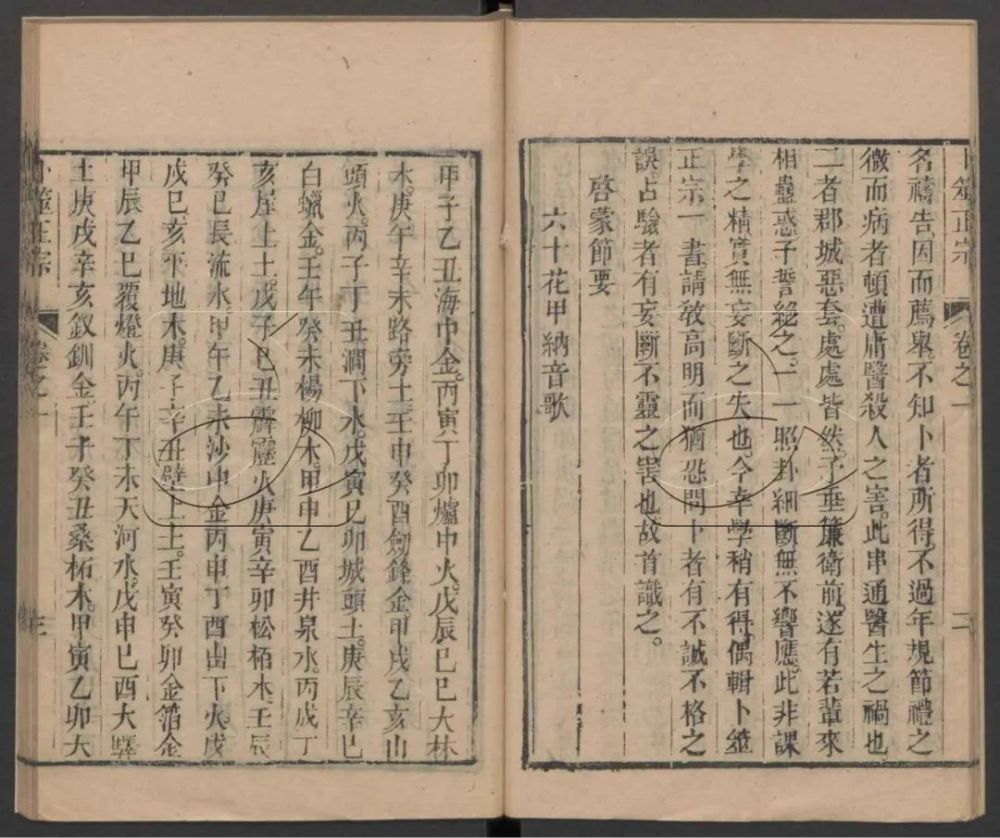 卜筮正宗 卷之一 二
名禱告因而薦舉不知卜者所得不過年規節禮之
微而病者頓遭庸醫殺人之害此串通醫生之禍也
二者郡城惡套處處皆然予垂簾衛前遂有若輩來
相蠱惑予誓絕之一一照卦細斷無不響應此非課
學之精實無妄斷之失也今幸學稍有得偶輯卜筮
正宗一書請教高明而猶恐問卜者有不誠不格之
誤占驗者有妄斷不靈之害也故首識之。
啓蒙節要
六十花甲納音歌
甲子乙丑海中金。丙寅丁卯爐中火。戊辰巳巳大林
木。庚午辛未路旁土。壬申癸酉劒鋒金甲戌乙亥山
頭火。丙子丁丑澗下水。戊寅巳卯城頭土。庚辰辛巳
白蠟金。壬午癸未楊柳木。甲申乙酉井泉水。丙戌丁
亥屋上土。戊子巳丑霹靂火庚寅辛卯松栢木。壬辰
癸巳長流水。甲午乙未沙中金丙申丁酉山下火。戊
戌巳亥平地木。庚子辛丑壁上土。壬寅癸卯金箔金
甲辰乙巳覆燈火。丙午丁未天河水。戊申巳酉大驛
土庚戌辛亥釵釧金。壬子癸丑桑柘木。甲寅乙卯大
卜筮正宗 卷之一 三